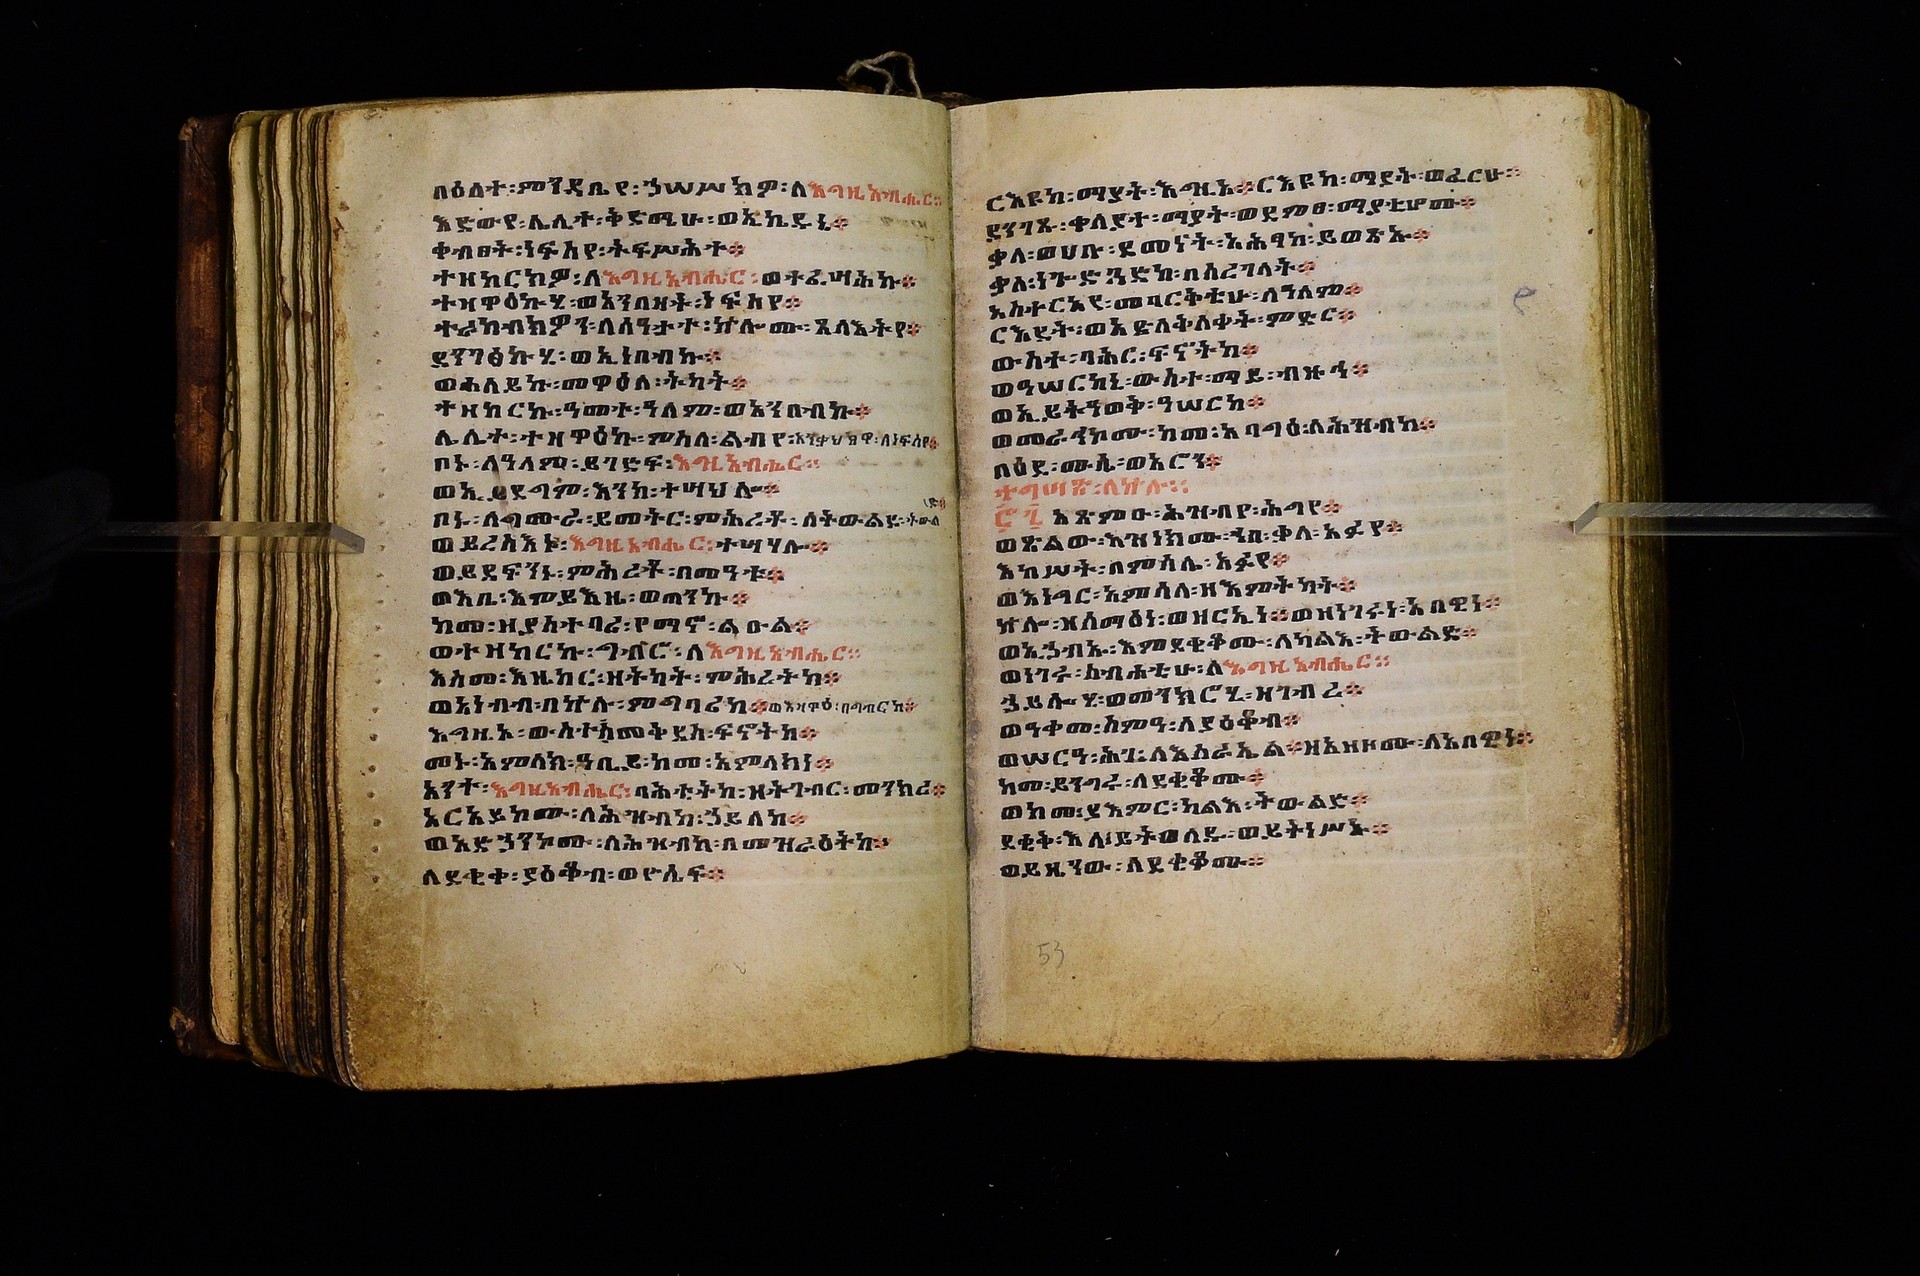 በዕለተ፡ምንዳቤየ፡ኃሠሥክዎ፡ለእግዚአብሔር።
እድውየ፡ሌሊተ፡ቅድሜሁ፡ወኢኬዱኒ።
ቀብፀት፡ነፍስየ፡ትፍሥሕተ።
ተዘከርክዎ፡ለእግዚአብሔር፡ወተፈሣሕኩ።
ተዛዋዕኩሂ፡ወአንበዘት፡ነፍስየ።
ተራከብክዎን፡ለሰዓታት፡ኵሎሙ፡ጸላእትየ።
ደንገፅኩሂ፡ወኢነበብኩ።
ወሐለይኩ፡መዋዕለ፡ትካት።
ተዘከርኩ፡ዓመተ፡ዓለም፡ወአንበብኩ።
ሌሊተ፡ተዛዋዕኩ፡ምስለ፡ልብየ፡አንቃህክዋ፡ለነፍስየ።
ቦኑ፡ለዓለም፡ይገድፍ፡እግዚአብሔር።
ወኢይደግም፡እንከ፡ተሣህሎ።
ቦኑ፡ለግሙራ፡ይመትር፡ምሕረቶ፡ለትውልደ፡ትውልድ።
ወይረስእኑ፡እግዚአብሔር፡ተሣህሎ።
ወይደፍንኑ፡ምሕረቶ፡በመዓቱ።
ወእቤ፡እምይእዜ፡ወጠንኩ።
ከመ፡ዘያስተባሪ፡የማኖ፡ልዑል።
ወተዘከርኩ፡ግብሮ፡ለእግዚአብሔር።
እስመ፡እዜከር፡ዘትካት፡ምሕረትከ።
ወአነብብ፡በኵሉ፡ምግባሪከ።ወእዛዋዕ፡በግብርከ።
እግዚኦ፡ውስተ፡መቅደስ፡ፍኖትከ።
መኑ፡አምላክ፡ዓቢይ፡ከመ፡አምላክነ።
አንተ፡እግዚአብሔር፡ባሕቲትከ፡ዘትገብር፡መንክረ።
አርአይኮሙ፡ለሕዝብከ፡ኃይለከ።
ወአድኃንኮሙ፡ለሕዝብከ፡በመዝራዕትከ።
ለደቂቀ፡ያዕቆብ፡ወዮሴፍ።
ርእዩከ፡ማያት፡እግዚኦ።ርእዩከ፡ማያት፡ወፈርሁ።
ደንገጹ፡ቀላያተ፡ማያት፡ወደምፀ፡ማያቲሆሙ።
ቃለ፡ወሀቡ፡ደመናት፡አሕፃከ፡ይወጽኡ።
ቃለ፡ነጐድጓድከ፡በሰረገላት።
አስተርአየ፡መባርቅቲሁ፡ለዓለም።
ርእደት፡ወአድለቅለቀት፡ምድር።
ውስተ፡ባሕር፡ፍኖትከ።
ወዓሠርከኒ፡ውስተ፡ማይ፡ብዙኅ።
ወኢይትዓወቅ፡ዓሠርከ።
ወመራኅኮሙ፡ከመ፡አባግዕ፡ለሕዝብከ።
በዕደ፡ሙሴ፡ወአሮን።
ተግሣጽ፡ለኵሉ።
አጽምዑ፡ሕዝብየ፡ሕግየ።
ወጽልው፡እዝነክሙ፡ኀበ፡ቃለ፡አፉየ።
እከሥት፡በምሳሌ፡አፉየ።
ወእነግር፡አምሳለ፡ዘእምትካት።
ኵሎ፡ዘሰማዕነ፡ወዘርኢነ።ወዘነገሩነ፡አበዊነ።
ወኢኃብኡ፡እምደቂቆሙ፡ለካልእ፡ትውልድ።
ወነገሩ፡ስብሐቲሁ፡ለእግዚአብሔር።
ኃይሎሂ፡ወመንክሮሂ፡ዘገብረ።
ወዓቀመ፡ስምዓ፡ለያዕቆብ።
ወሠርዓ፡ሕገ፡ለእስራኤል።ዘአዘዞሙ፡ለአበዊነ።
ከመ፡ይንግሩ፡ለደቂቆሙ።
ወከመ፡ያእምር፡ካልእ፡ትውልድ።
ደቂቅ፡እለ፡ይትወለዱ፡ወይትነሥኡ።
ወይዜንው፡ለደቂቆሙ።
53